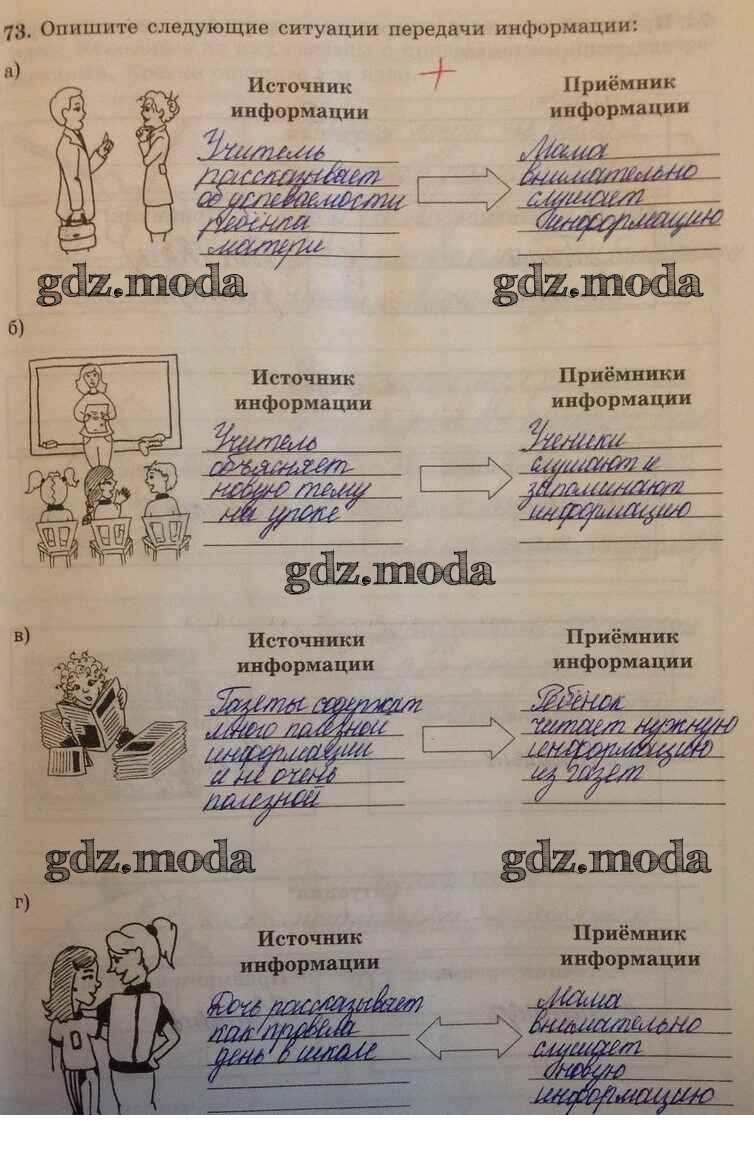 73. Опишите следующие ситуации передачи информации:
а)
Источник
информации
Учитель
рассказывает
об успеваемости
ребёнка
матери
Приёмник
информации
Мама
внимательно
слушает
информацию
gdz.moda
gdz.moda
б)
Источник
информации
Учитель
объясняет
новую тему
на уроке
Приёмники
информации
Ученики
слушают и
запоминают
информацию
gdz.moda
в)
Источники
информации
Газеты содержат
много полезной
информации
и не очень
полезной
Приёмник
информации
Ребёнок
читает нужную
информацию
из газет
gdz.moda
gdz.moda
г)
Источник
информации
Дочь рассказывает
как провела
день в школе
Приёмник
информации
Мама
внимательно
слушает
новую
информацию